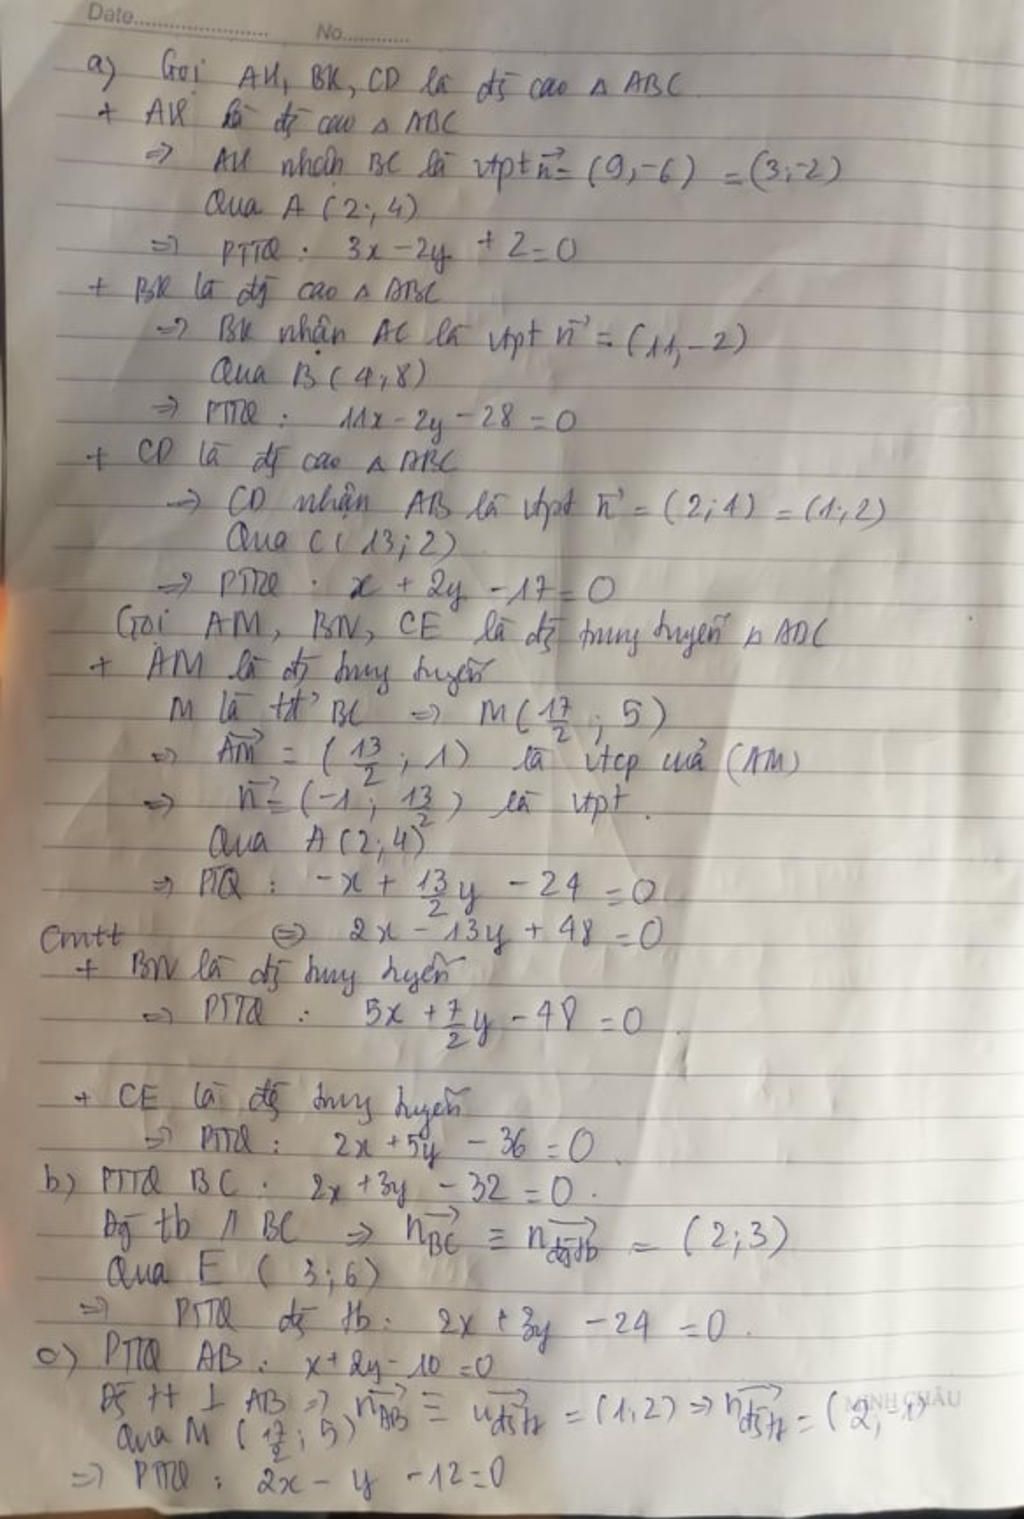 Date............ No............
a) Gọi AH, BK, CD là đg cao △ ABC.
+ AH là đg cao △ ABC
=> AH nhận BC là vtpt n⃗ = (9;-6) = (3;-2)
Qua A (2;4)
=> PTTQ : 3x - 2y + 2 = 0
+ BK là đg cao △ ABC
=> BK nhận AC là vtpt n⃗ = (11;-2)
Qua B (4;8)
=> PTTQ : 11x - 2y - 28 = 0
+ CD là đg cao △ ABC
=> CD nhận AB là vtpt n⃗ = (2;4) = (1;2)
Qua C (13;2)
=> PTTQ : x + 2y - 17 = 0
Gọi AM, BN, CE là đg trung tuyến △ ABC
+ AM là đg trung tuyến
M là tđ BC => M(17/2 ; 5)
=> AM⃗ = (13/2 ; 1) là vtcp của (AM)
=> n⃗ = (-1 ; 13/2) là vtpt.
Qua A (2;4)
=> PTQ : -x + 13/2 y - 24 = 0
Cmtt <=> 2x - 13y + 48 = 0
+ BN là đg trung tuyến
=> PTTQ : 5x + 7/2 y - 48 = 0.
+ CE là đg trung tuyến
=> PTTQ : 2x + 5y - 36 = 0.
b) PTTQ BC : 2x + 3y - 32 = 0.
Đg tb // BC => n⃗BC ≡ n⃗đg tb = (2;3)
Qua E (3;6)
=> PTTQ đg tb : 2x + 3y - 24 = 0.
c) PTTQ AB : x + 2y - 10 = 0
Đg tt ⊥ AB => n⃗AB ≡ u⃗đg tt = (1;2) => n⃗đg tt = (2;-1)
MINH CHÂU
Qua M (17/2 ; 5)
=> PTTQ : 2x - y - 12 = 0